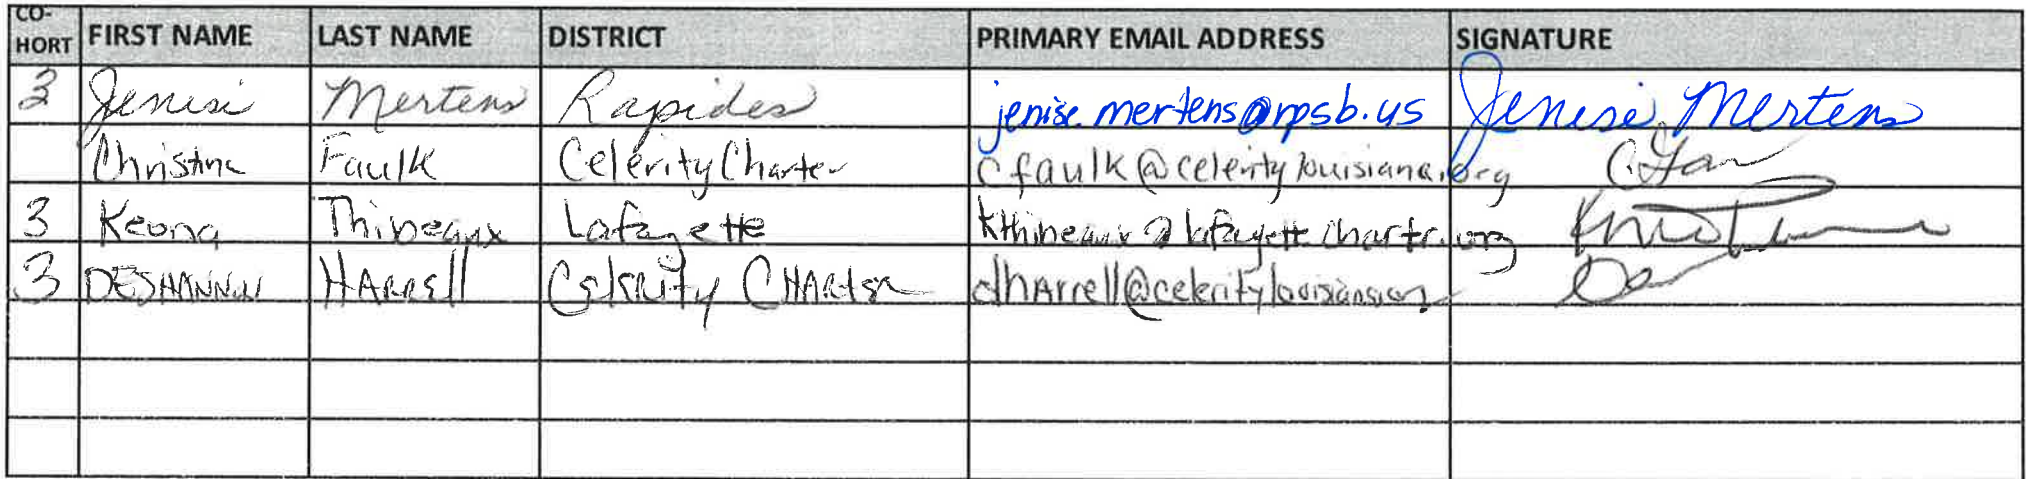 CO-HORT FIRST NAME LAST NAME DISTRICT PRIMARY EMAIL ADDRESS SIGNATURE
3 Jenise Mertens Rapides jenise.mertens@rpsb.us Jenise Mertens
Christina Faulk Celerity Charter cfaulk@celeritylouisiana.org
3 Keona Thibeaux Lafayette kthibeaux@lafayettecharter.org
3 DESHANNON HARRell CELERITY CHARTER dharrell@celeritylouisiana.org